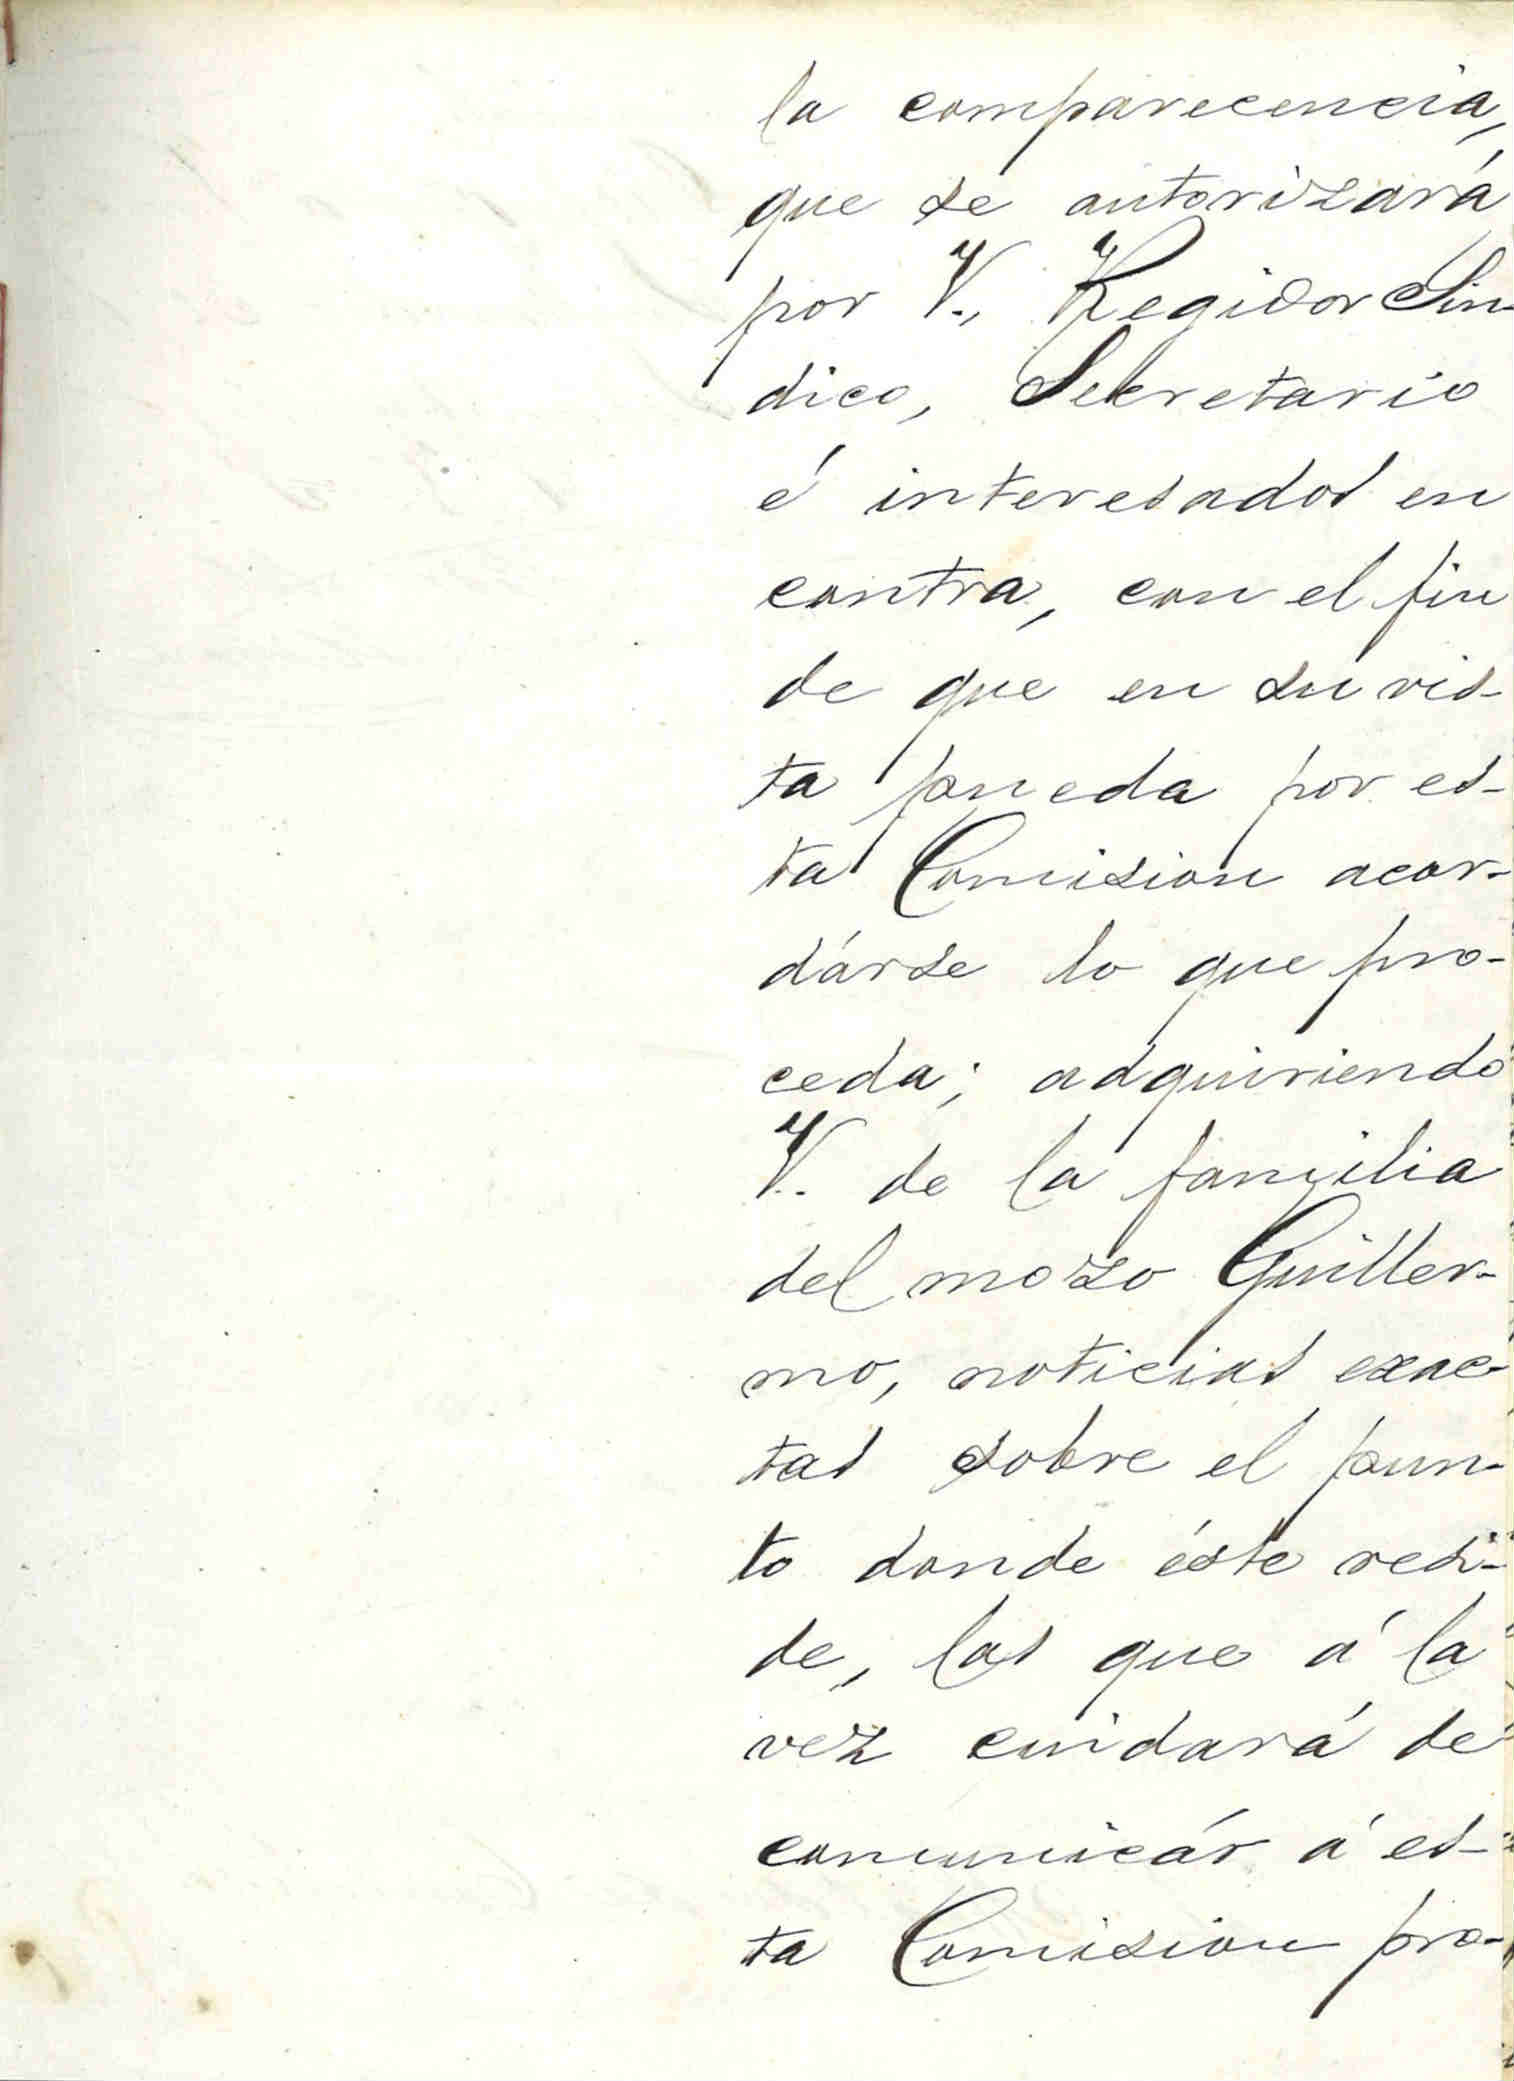 la comparecencia,
que se autorizará
por V., Regidor Sin-
dico, Secretario
é interesados en
contra, con el fin
de que en su vis-
ta pueda por es-
ta Comision acor-
dárse lo que pro-
ceda; adquiriendo
V. de la familia
del mozo Guiller-
mo, noticias exac-
tas sobre el pun-
to donde éste resi-
de, las que á la
vez cuidará de
comunicár á es-
ta Comision pro-